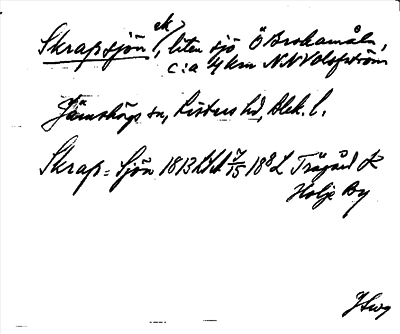 Skrapsjön ek
l, liten sjö Ö Brokamåla,
c:a 4 km NNV Olofström
Jämshögs sn, Listers hd, Blek. l.
Skrap-Sjön 1813 Lskt 7/15 188 L Trägård
Holje By